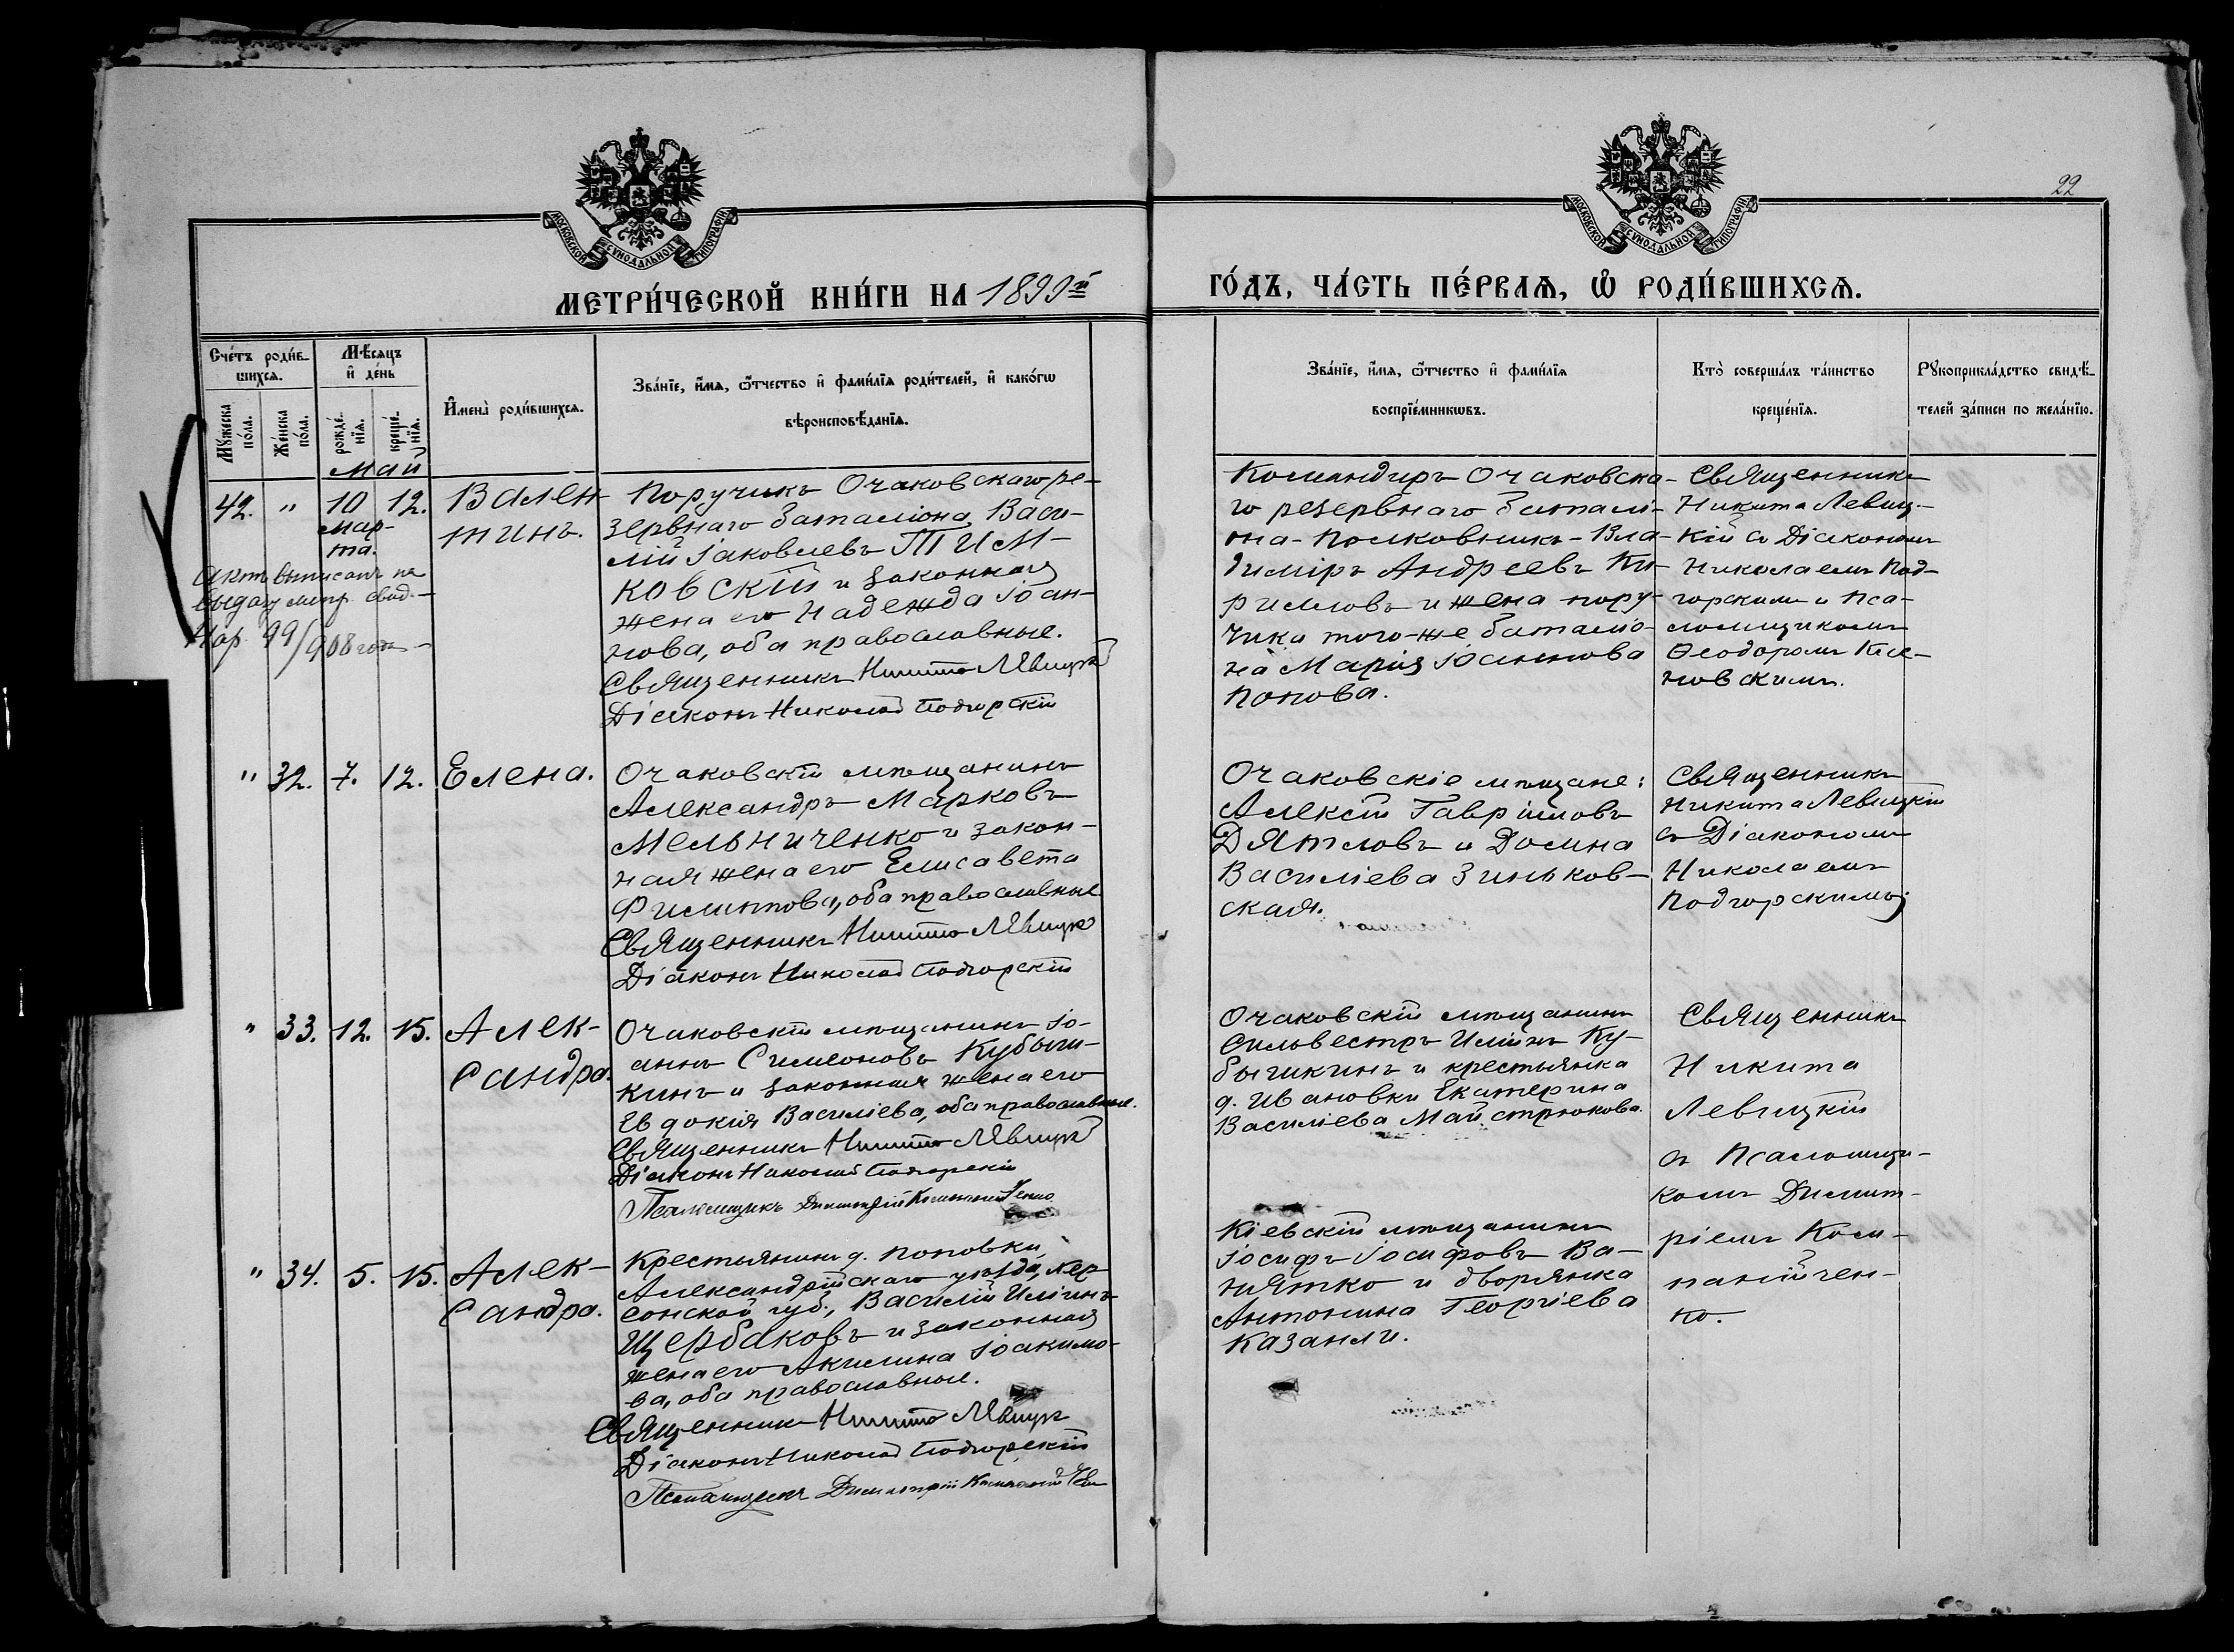 22
МОСКОВСКОЙ СУНОДАЛЬНОЙ ТИПОГРАФІИ
МОСКОВСКОЙ СУНОДАЛЬНОЙ ТИПОГРАФІИ
МЕТРИ́ЧЕСКОЙ КНИ́ГИ НА 1899й
ГО́ДЪ, ЧА́СТЬ ПЕ́РВАѦ, Ѡ҆ РОДИ́ВШИХСѦ.
Сче́тъ роди́в-
шихсѧ.
Мꙋ́жеска по́ла.
Же́нска по́ла.
Мѣ́сѧцъ
и҆ де́нь
рожде́-
нїѧ.
креще́-
нїѧ.
И҆мена̀ роди́вшихсѧ.
Зва́нїе, и҆́мѧ, ѻ҆́тчество и҆ фами́лїѧ роди́телей, и҆ како́гѡ
вѣроисповѣ́данїѧ.
Зва́нїе, и҆́мѧ, ѻ҆́тчество и҆ фами́лїѧ
воспрїе́мникѡвъ.
Кто̀ соверша́лъ та́инство
креще́нїѧ.
Рꙋкоприкла́дство свидѣ́-
телей за́писи по жела́нїю.
Май
42. " 10 12.
Мар-
та.
Вален-
тинъ.
Актъ выписанъ на
выдачу метр. свид. -
Нар. 99/908 года -
Поручикъ Очаковскаго ре-
зервнаго баталіона Васи-
лій Іаковлевъ Тим-
ковскій и законная
жена его Надежда Іоан-
нова, оба православные.
Священникъ Никита Левицкій
Діаконъ Николай Подгорскій
Командиръ Очаковска-
го резервнаго баталі-
она-Полковникъ-Вла-
диміръ Андреевъ Ки-
рилловъ и жена пору-
чика того-же баталіо-
на Марія Іоаннова
Попова.
Священникъ
Никита Левиц-
кій съ Діакономъ
Николаемъ Под-
горскимъ и Пса-
ломщикомъ
Ѳеодоромъ
новскимъ.
" 32. 7. 12. Елена.
Очаковскій мѣщанинъ
Александръ Марковъ
Мельниченко и закон-
ная жена его Елисавета
Филиппова, оба православные
Священникъ Никита Левицкій
Діаконъ Николай Подгорскій
Очаковскіе мѣщане:
Алексій Гавріиловъ
Дятловъ и Домна
Василіева Зиньков-
ская.
Священникъ
Никита Левицкій
съ Діакономъ
Николаемъ
Подгорскимъ
" 33. 12. 15. Алек-
сандра.
Очаковскій мѣщанинъ Іо-
аннъ Симеоновъ Кубыш-
кинъ и законная жена его
Евдокія Василіева, оба православные.
Священникъ Никита Левицкій
Діаконъ Николай Подгорскій
Псаломщикъ Димитрій Компанійченко
Очаковскій мѣщанинъ
Сильвестръ Иліинъ Ку-
бышкинъ и крестьянка
д. Ивановки Екатерина
Василіева Майстрюкова.
Священникъ
Никита
Левицкій
съ Псаломщи-
комъ Димит-
ріемъ Ком-
панійчен-
ко.
" 34. 5. 15. Алек-
сандра.
Крестьянинъ д. Поповки,
Александрійскаго уѣзда, Хер-
сонской губ., Василій Иліинъ
Щербаковъ и законная
жена его Акилина Іоакимо-
ва, оба православные.
Священникъ Никита Левицкій
Діаконъ Николай Подгорскій
Псаломщикъ Димитрій Компанійченко
Кіевскій мѣщанинъ
Іосифъ Іосифовъ Ва-
нятко и дворянка
Антонина Георгіева
Казанли.